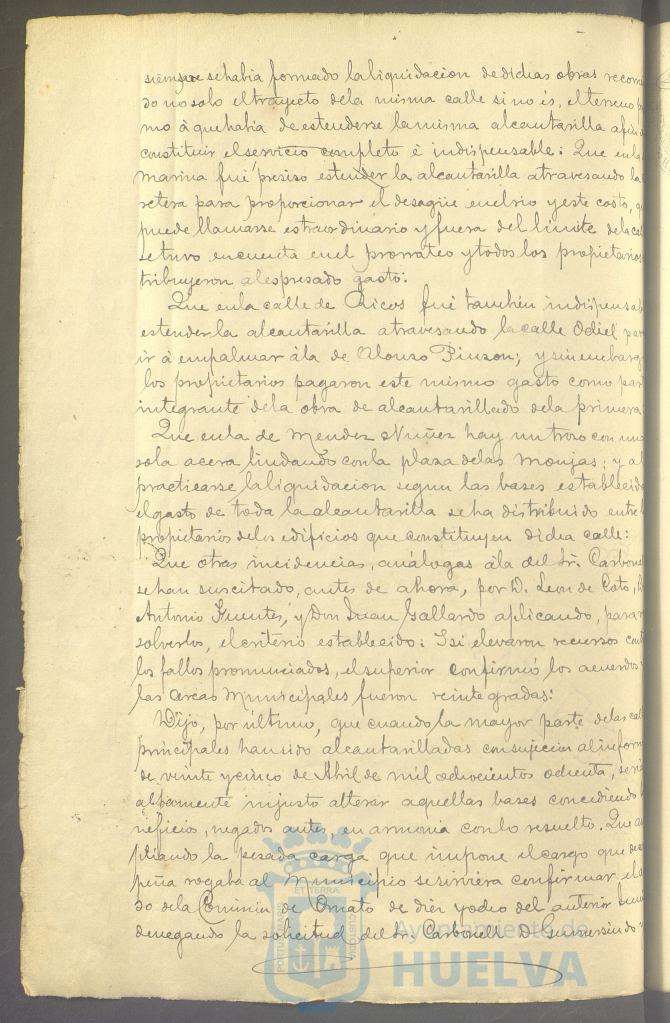 siempre se habia formado la liquidacion de dichas obras recorri
do no solo el trayecto dela misma calle si no és, el terreno
mo à que habia de estenderse la misma alcantarilla afin
constituir el servicio completo é indispensable: Que enla
marina fué preciso estender la alcantarilla atravesando la
retera para proporcionar el desagüe enelrio y este costo, q
puede llamarse estraordinario y fuera del limite dela cal
se tuvo encuenta enel prorrateo y todos los propietarios
tribuyeron alespresado gasto:
Que enla calle de Ricos fué tambien indispensab
estender la alcantarilla atravesando la calle Odiel par
ir à empalmar àla de Alonso Pinzon; y sin embarg
los propietarios pagaron este mismo gasto como par
integrante dela obra de alcantarillado dela primera
Que enla de Mendez Nuñez hay un trozo con una
sola acera lindando conla plaza delas Monjas; y al
practicarse la liquidacion segun las bases establecid
el gasto de toda la alcantarilla se ha distribuido entre l
propietarios delos edificios que constituyen dicha calle:
Que otras incidencias, análogas àla del Sr. Carbone
se han suscitado, antes de ahora, por D. Leon de Coto, D
Antonio Fuentes, y Don Juan Gallardo aplicando, para r
solverlos, el criterio establecido: I si elevaron recursos cont
los fallos pronunciados, el superior confirmó los acuerdos y
las arcas Municipales fueron reintegradas:
Dijo, por último, que cuando la mayor parte delas cal
principales han sido alcantarilladas con sujecion al inform
de veinte y cinco de Abril de mil ochocientos ochenta, seri
altamente injusto alterar aquellas bases concediendo
neficios, negados antes, en armonia conlo resuelto. Que
pliando la pesada carga que impone el cargo que dese
peña rogaba al Municipio se sirviera confirmar el a
do dela Comision de Ornato de diez y ocho del anterior
denegando la solicitud del Sr. Carbonell D. Gumersindo
PORTUS MARIS ET TERRAE CUSTODIA
Ayuntamiento de
HUELVA